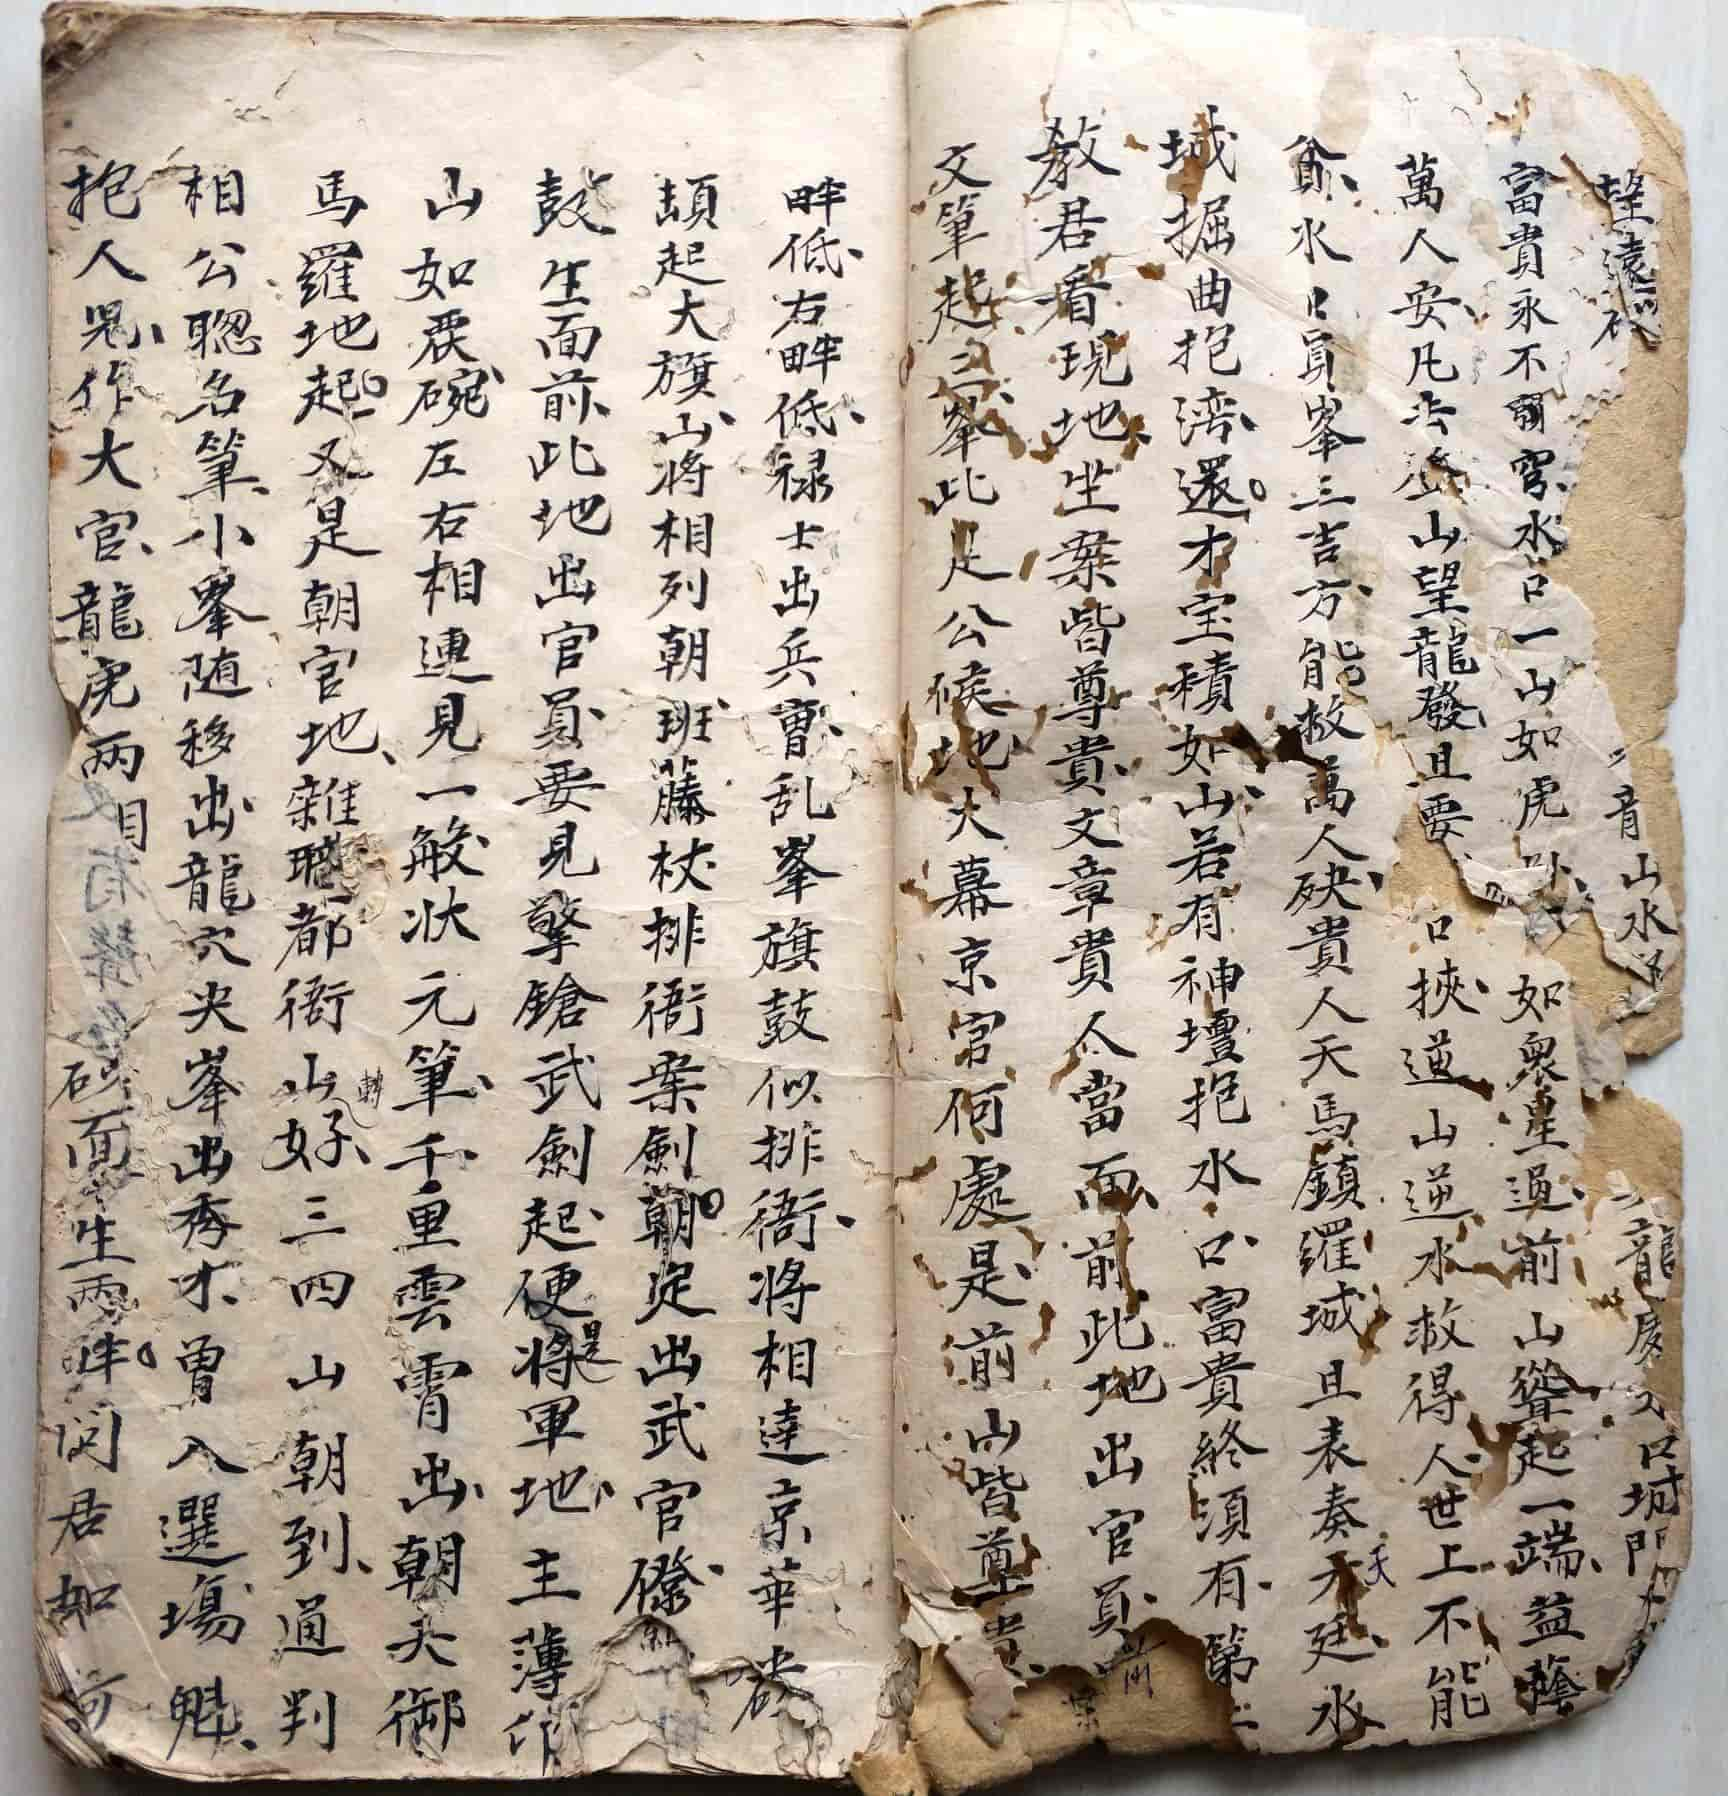 望遠
青山水
龍 口城門
富貴永不 穿水口一山如虎卧 如衆星過前山聳起一端益蔭
萬人安凡去登山望龍發且要 口挾逆山逆水救得人世上不能
貪水口員峯三吉方能救萬人砄貴人天馬鎮羅城且表奏天廷水
城掘曲抱湾還才宝積如山若有神壇抱水口富貴終須有第二
教君看現地坐案皆尊貴文章貴人當面前此地出官員
文筆起三峯此是公候地大幕京官何處是前山皆尊貴
畔低右畔低禄士出兵曹乱峯旗鼓似排衙将相達京華
頡起大旗山将相列朝班藤杖排衙案劍朝定出武官僚
鼓生面前此地出官員要見擎鎗武劍起便是将軍地主薄作
山如覆碗左右相連見一般状元筆千重雲霄出朝天御
馬羅地起又是朝官地雜職都衙山轉好三四山朝到通判
相公聡名筆小峯随移出龍穴尖峯出秀才曽入選塲魁
抱人児作大官龍虎兩 砂面生兩畔问君如何